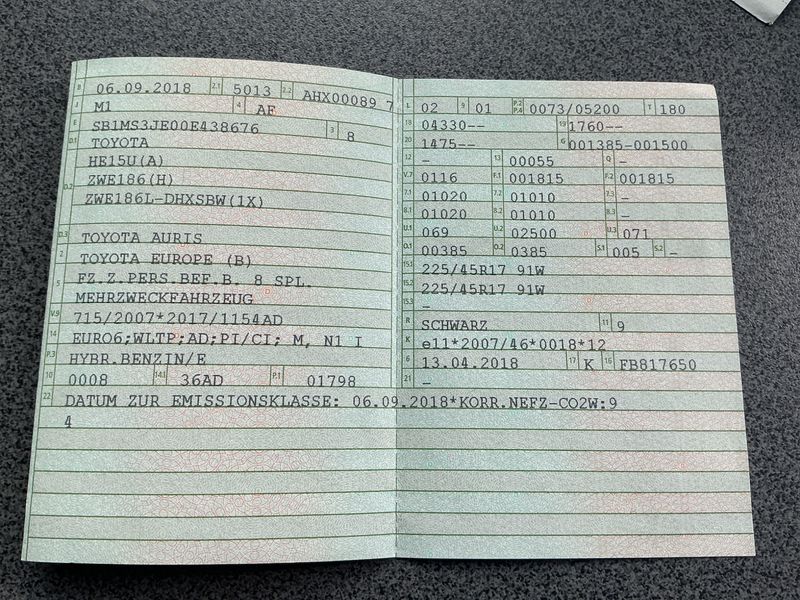 B 06.09.2018 2.1 5013 2.2 AHX00089 7
J M1 4 AF
E SB1MS3JE00E438676 3 8
D.1 TOYOTA
HE15U(A)
D.2 ZWE186(H)
ZWE186L-DHXSBW(1X)
D.3 TOYOTA AURIS
2 TOYOTA EUROPE (B)
5 FZ.Z.PERS.BEF.B. 8 SPL.
MEHRZWECKFAHRZEUG
V.9 715/2007*2017/1154AD
14 EURO6;WLTP;AD;PI/CI; M, N1 I
P.3 HYBR.BENZIN/E
10 0008 14.1 36AD P.1 01798
L 02 9 01 P.2 P.4 0073/05200 T 180
18 04330-- 19 1760--
20 1475-- G 001385-001500
12 - 13 00055 Q -
V.7 0116 F.1 001815 F.2 001815
7.1 01020 7.2 01010 7.3 -
8.1 01020 8.2 01010 8.3 -
U.1 069 U.2 02500 U.3 071
O.1 00385 O.2 0385 S.1 005 S.2 -
15.1 225/45R17 91W
15.2 225/45R17 91W
15.3 -
R SCHWARZ 11 9
K e11*2007/46*0018*12
6 13.04.2018 17 K 16 FB817650
21 -
22 DATUM ZUR EMISSIONSKLASSE: 06.09.2018*KORR.NEFZ-CO2W:9
4